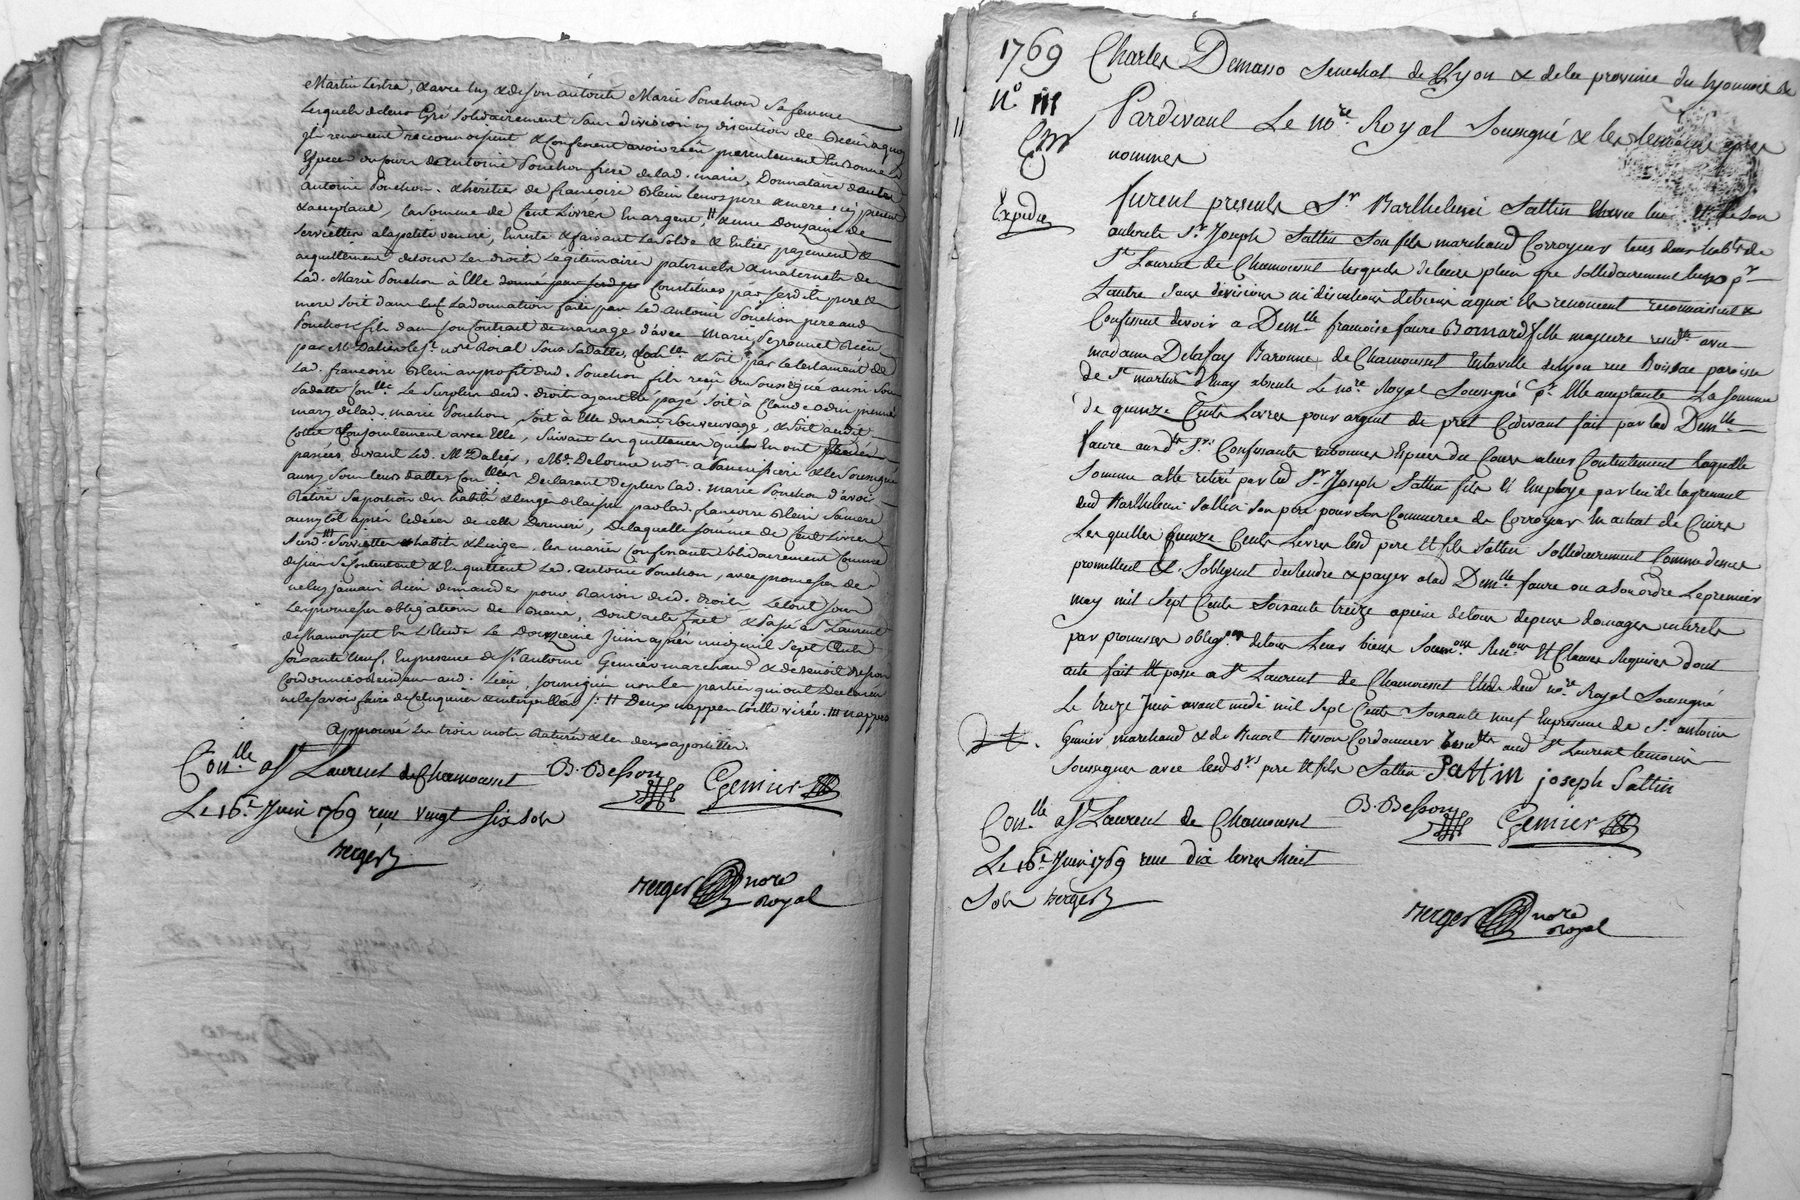 Martin Lestra, & avec luy & de son autorité Marie Ponchon sa femme
Lesquels de leur gré solidairement sans division ny discution de biens a quoy
ils renoncent reconnoissent & Confessent avoir reçu presentement En bonnes
Especes du cours de antoine Ponchon frere de lad. marie, Donnataire d'autre
antoine Ponchon & heritier de françoise Blein leurs pere & mere icy present
& acceptant, la somme de Cent Livres En argent, # & une Douzaine de
serviettes a la petite venise, En reste & faisant la solde & Entier payement &
acquittement de tous les droits Legitimaires paternels & maternels de
Lad. Marie Ponchon à Elle Constitués par sesd. pere &
mere soit dans lad. donnation faite par led. antoine Ponchon pere aud.
Ponchon fils dans son Contrat de mariage d'avec Marie Peronnet Reçu
par Me Dalier le nore Roial sous sa datte, & soit par le testament de
Lad. françoise Blein au profit dud. Ponchon fils reçu du soussigné aussi sous
sa datte Conlle Le surplus desd. droits ayant Eté payé soit à Claude odin premier
mary de lad. marie Ponchon, soit à Elle durant son veuvage, & soit aud.
Conjointement avec Elle, suivant les quittances qu'ils En ont
passées devant led. Me Dalier, Me Delorme nore & le soussigné
aussy sous leurs dattes Conlles Declarant de plus lad. marie Ponchon d'avoir
Retiré sa portion des habits & linges delaissés par lad. françoise Blein sa mere
aussytot après le decès de cette Derniere, De laquelle somme de Cent Livres
serviettes & habits & linges les mariés Confessants solidairement Comme
dessus se Contentent & En quittent led. antoine Ponchon, avec promesse de
ne luy jamais Rien demander pour Raison desd. droits Le tout sous
Les promesses obligations de Biens, Dont acte fait & passé à St Laurent
de Chamousset En L'Etude Le Douzieme Juin après midy mil sept Cents
soixante neuf, En presence de Sr. Antoine Genier marchand & de Benoit Besson
Cordonnier demeurant aud. Lieu, soussignés non les parties qui ont Declaré
ne le savoir faire de ce Enquises & interpellées /: # Deux nappes toille virée. ## nappes
Approuvé les trois mots Raturés & les deux apostilles.
B. Besson Genier
Conlle a St Laurent de Chamousset
Le 16e Juin 1769 reçu Vingt Six sols
Berger
Berger nore Royal
1769
No
Expedié
Charles Demasso Senechal de Lyon & de la province du Lyonnois &c
Pardevant Le nore Royal Soussigné & les temoins après
nommés
furent presents Sr Barthelemi Sattin & avec lui & de Son
autorité Sr Joseph Sattin Son fils marchand Corroyeurs tous deux habts de
St Laurent de Chamousset lesquels de leur plein gré Sollidairement l'un pr
L'autre Sans division ni discution de biens a quoi ils renoncent reconnoissent &
Confessent devoir a Demlle françoise faure Bernard fille majeure residte avec
madame Delafay Baronne de Chamousset En la ville de Lyon rue Boissac paroisse
de St martin d'Enay absente Le nore Royal Soussigné pr Elle acceptante La Somme
de quinze Cents Livres pour argent de prêt Cidevant fait par lad Demlle
faure auxdts Srs Confessants En bonnes Especes du Cours a leur Contentement Laquelle
Somme a Eté retiré par led Sr Joseph Sattin fils Et Employé par lui de l'agrement
dud Barthelemi Sattin Son pere pour Son Commerce de Corroyeur En achat de Cuirs
Lesquelles quinze Cents Livres lesd pere Et fils Sattin Sollidairement Comme dessus
promettent & S'obligent de Rendre & payer a lad Demlle faure ou a Son ordre Le premier
may mil Sept Cents Soixante treize a peine de tous depens domages interets
par promesses obligons de tous Leurs biens Soumons Renons Et Clauses Requises dont
acte fait Et passé a St Laurent de Chamousset Etude dud nore Royal Soussigné
Le treize Juin avant midi mil Sept Cents Soixante neuf En presence de Sr antoine
Genier marchand & de Benoit Besson Cordonnier residts aud St Laurent temoins
Soussignés avec lesd Srs pere Et fils Sattin Sattin joseph Sattin
B. Besson Genier
Conlle a St Laurent de Chamousset
Le 16e Juin 1769 reçu dix livres huit
Sols Berger
Berger nore Royal